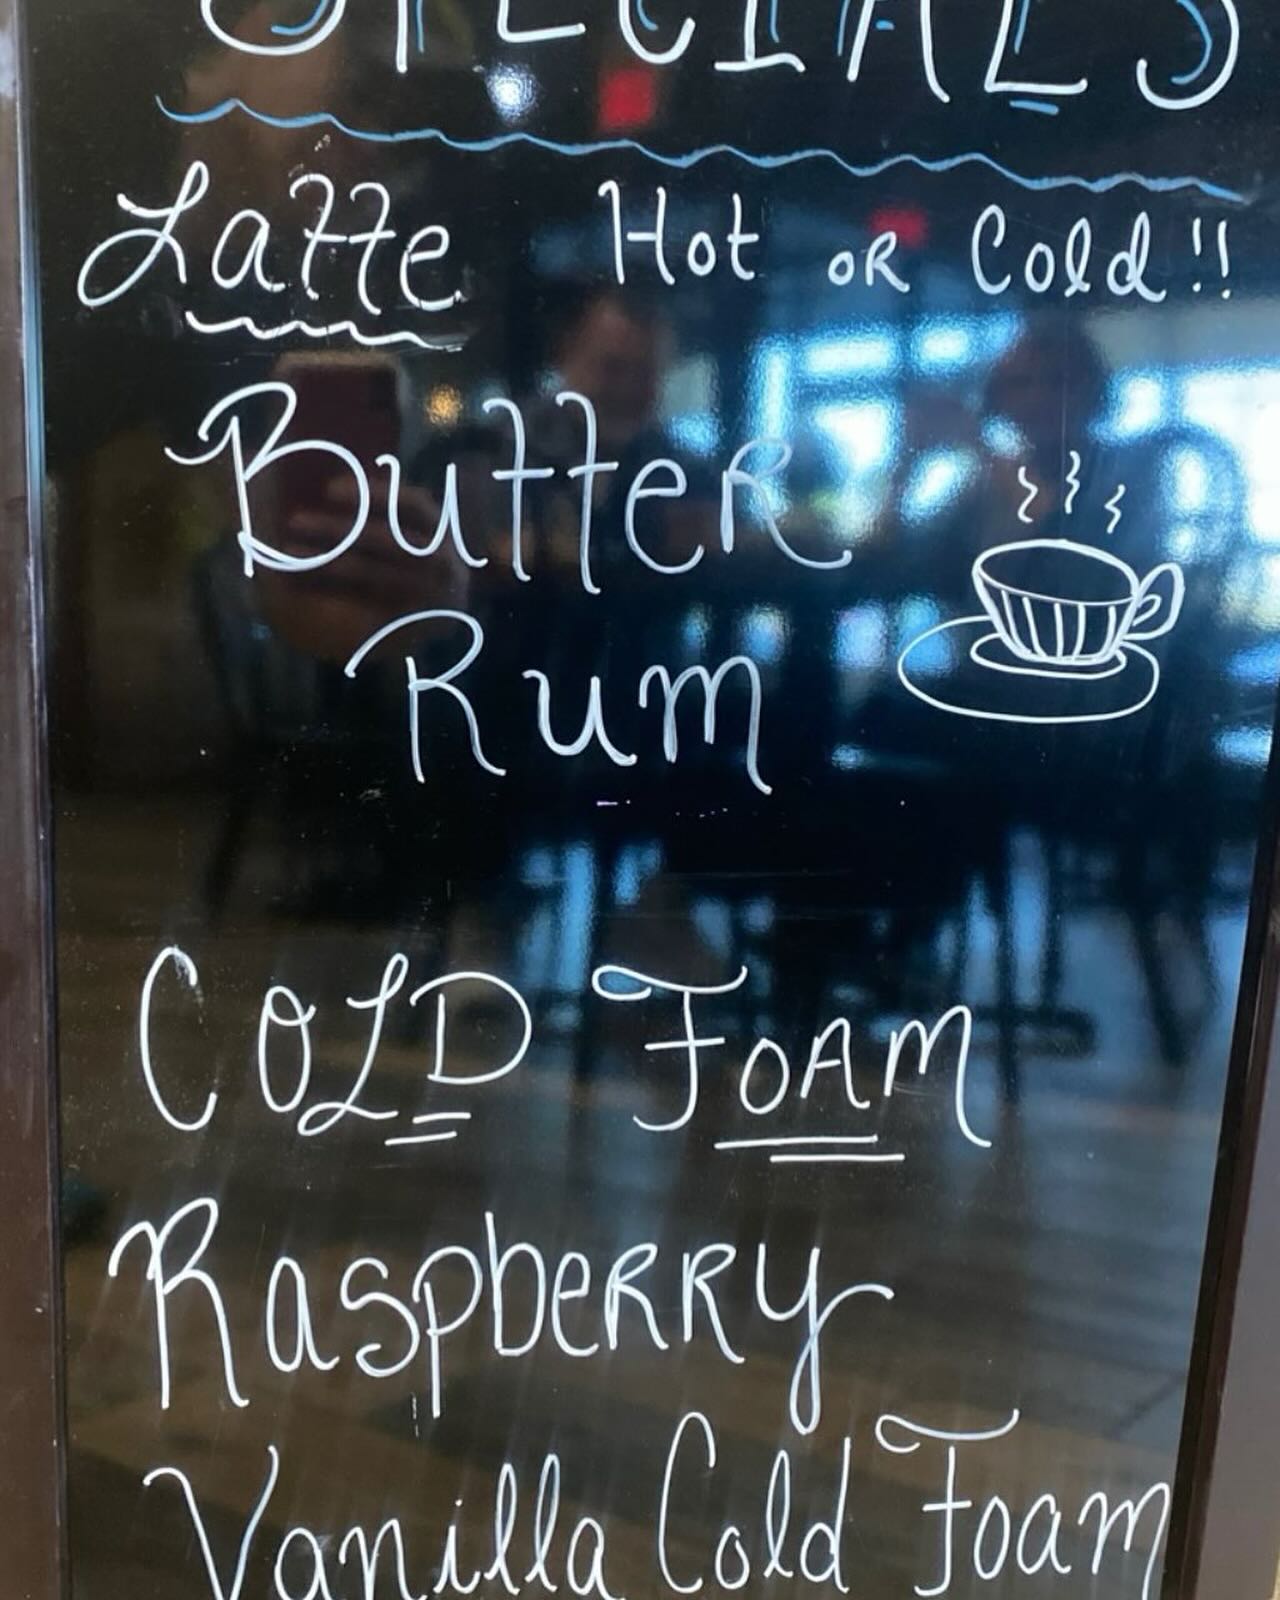 SPECIALS
Latte Hot OR Cold!!
ButteR
Rum
COLD FOAM
RaspbeRRy
Vanilla Cold Foam